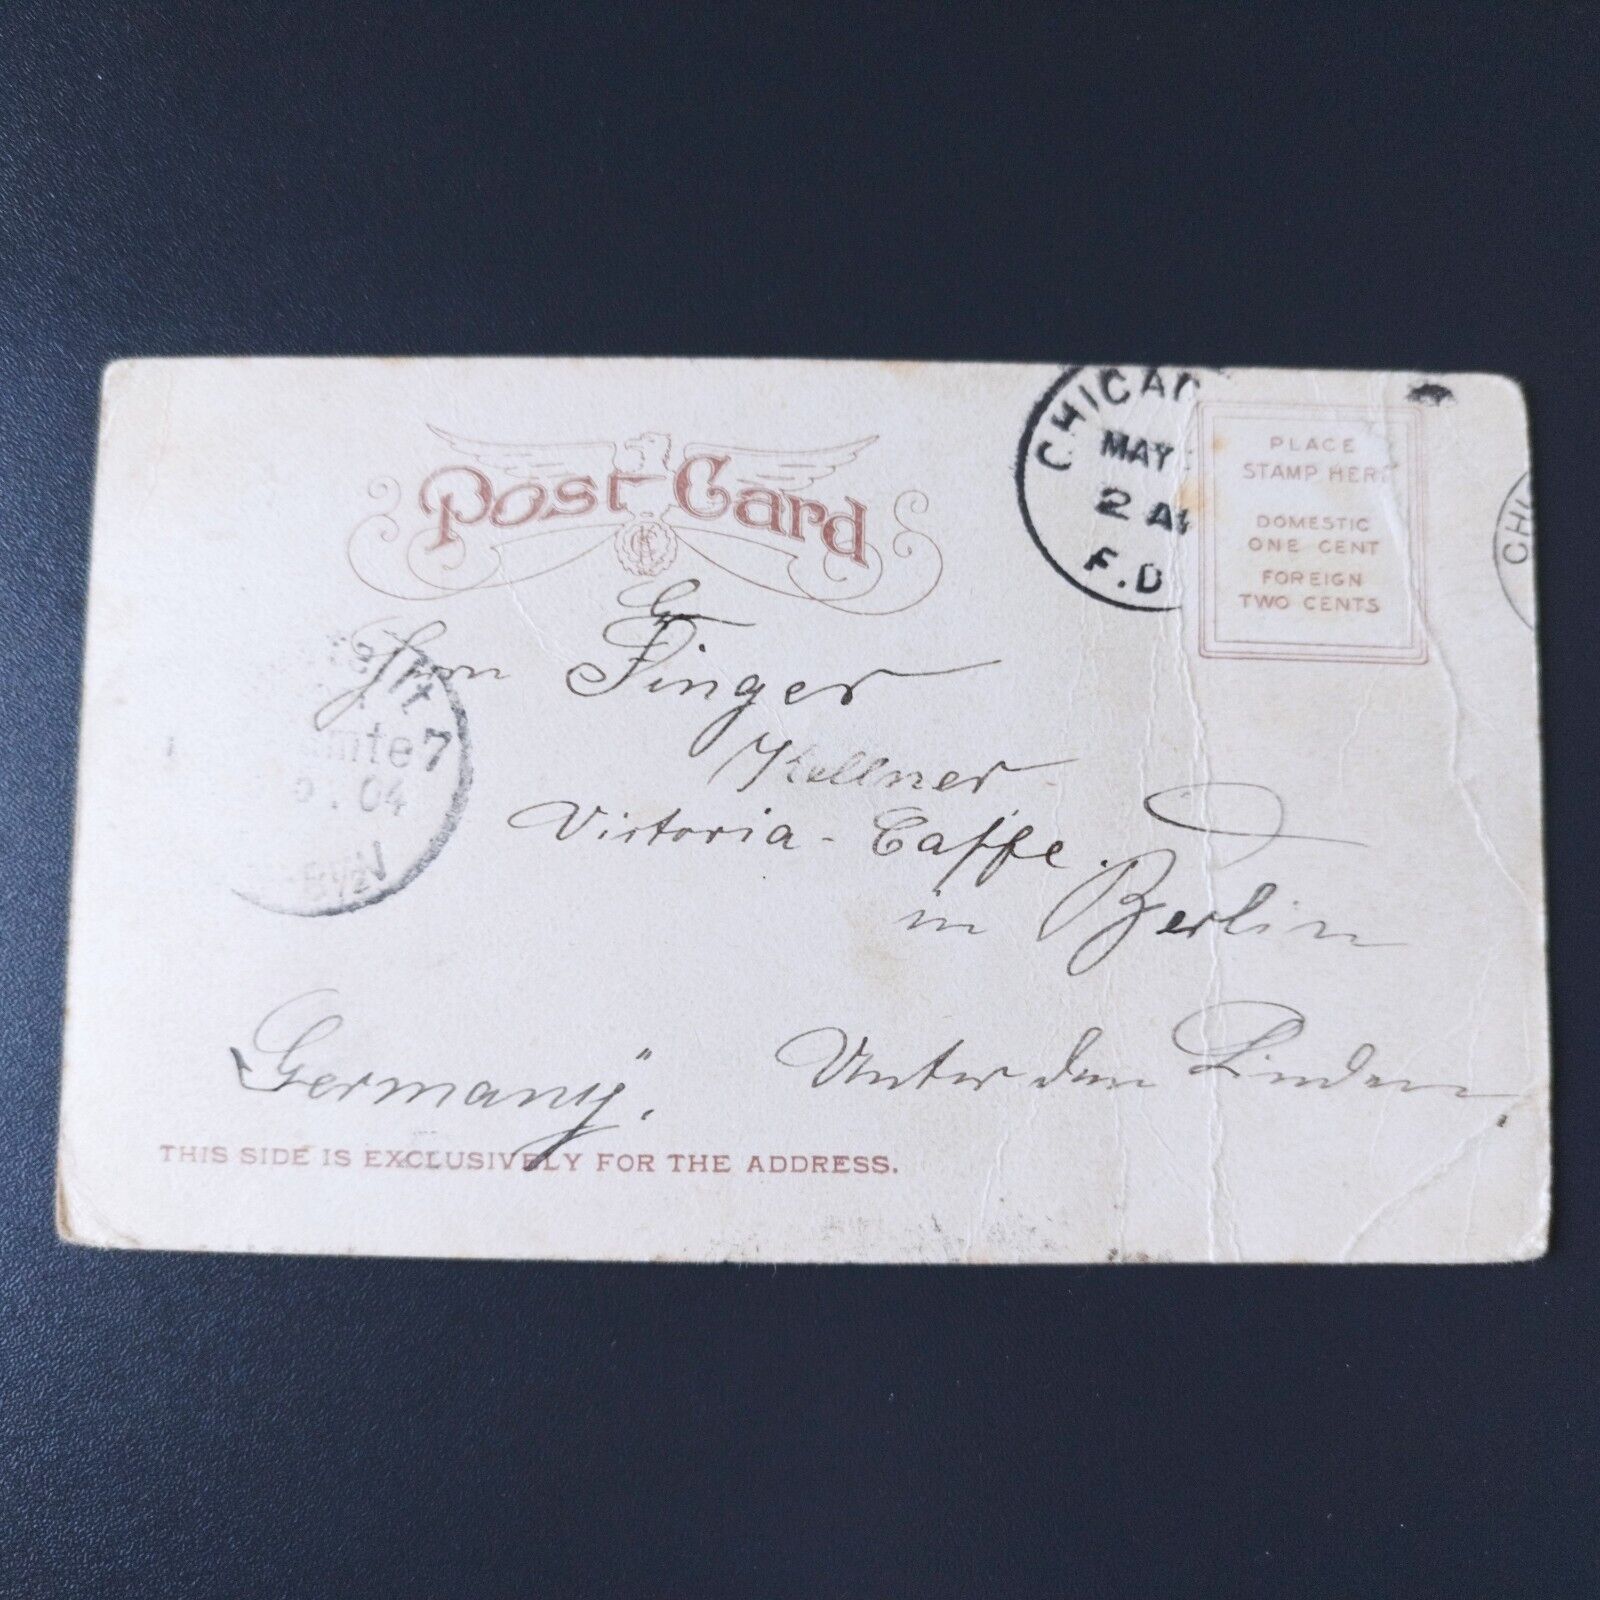 Post Card
CHICA
MAY
2 A
F.D
PLACE
STAMP HERE
DOMESTIC
ONE CENT
FOREIGN
TWO CENTS
CHI
Herrn Finger
Kellner
Victoria-Caffe.
in Berlin
Unter den Linden,
Germany".
7
04
8½N
THIS SIDE IS EXCLUSIVELY FOR THE ADDRESS.